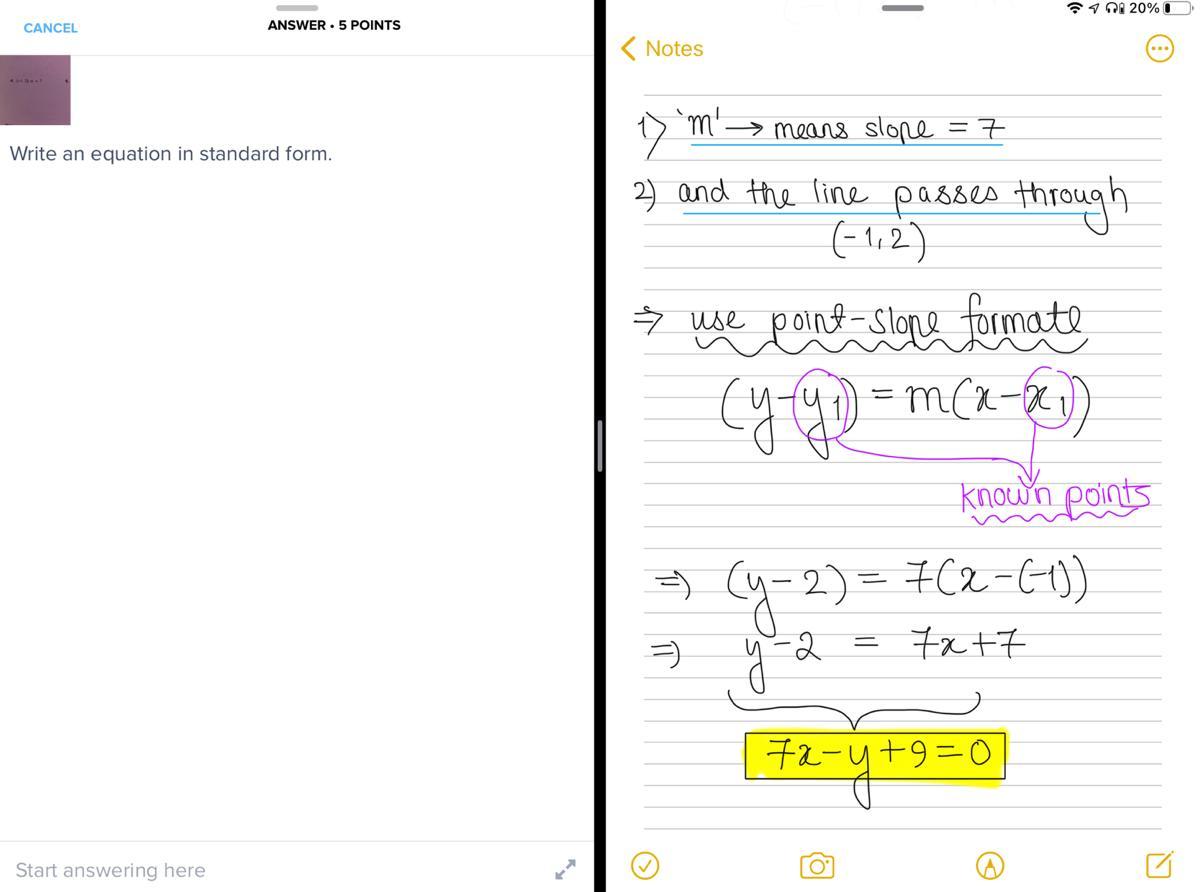 CANCEL
ANSWER • 5 POINTS
Write an equation in standard form.
Start answering here
20%
Notes
1) 'm' → means slope = 7
2) and the line passes through
(-1,2)
⇒ use point-slope formate
(y-y₁) = m(x-x₁)
known points
⇒ (y-2) = 7(x-(-1))
⇒ y-2 = 7x+7
7x-y+9=0